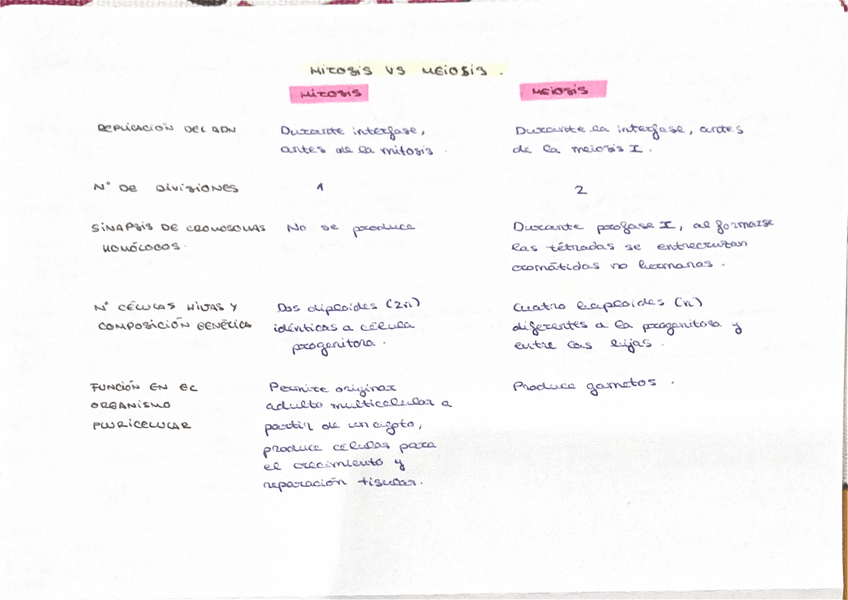 MITOSIS VS MEIOSIS.
MITOSIS
MEIOSIS
REPLICACIÓN DEL ADN
Durante interfase,
antes de la mitosis.
Durante la interfase, antes
de la meiosis I.
Nº DE DIVISIONES
1
2
SINAPSIS DE CROMOSOMAS
HOMÓLOGOS.
No se produce
Durante profase I, al formarse
las tétradas se entrecruzan
cromátidas no hermanas.
Nº CÉLULAS HIJAS Y
COMPOSICIÓN GENÉTICA
Dos diploides (2n)
idénticas a célula
progenitora.
Cuatro haploides (n)
diferentes a la progenitora y
entre las hijas.
FUNCIÓN EN EL
ORGANISMO
PLURICELULAR
Permite originar
adulto multicelular a
partir de un cigoto,
produce células para
el crecimiento y
reparación tisular.
Produce gametos.